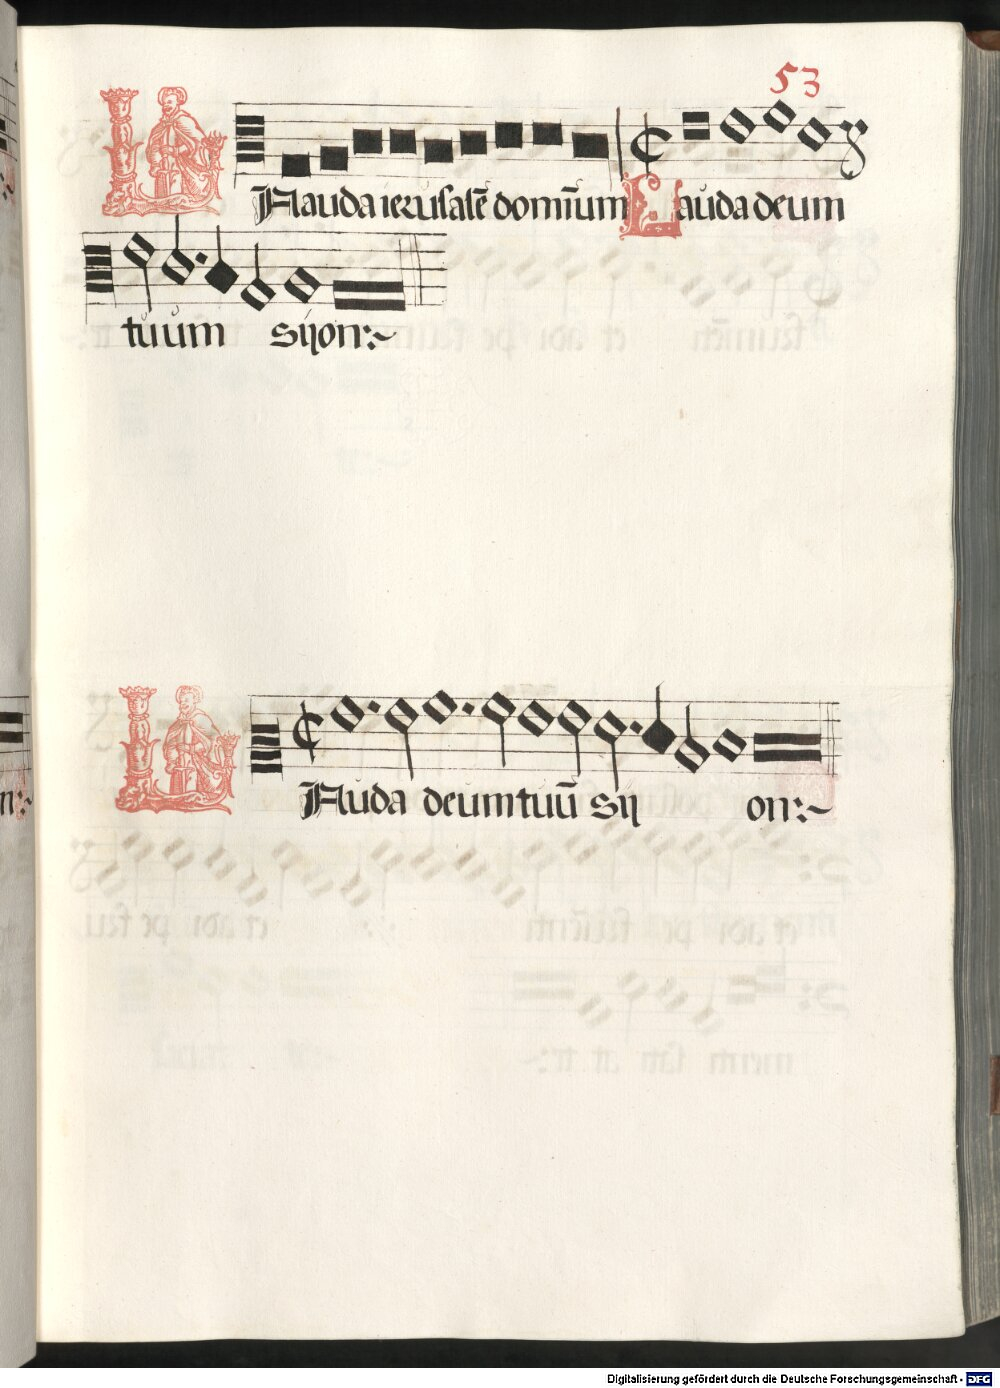 53
LAauda ierusalē dominum Lauda deum
tuum sijon:~
LAuda deum tuū sij on:~
n:~
Digitalisierung gefördert durch die Deutsche Forschungsgemeinschaft - DFG